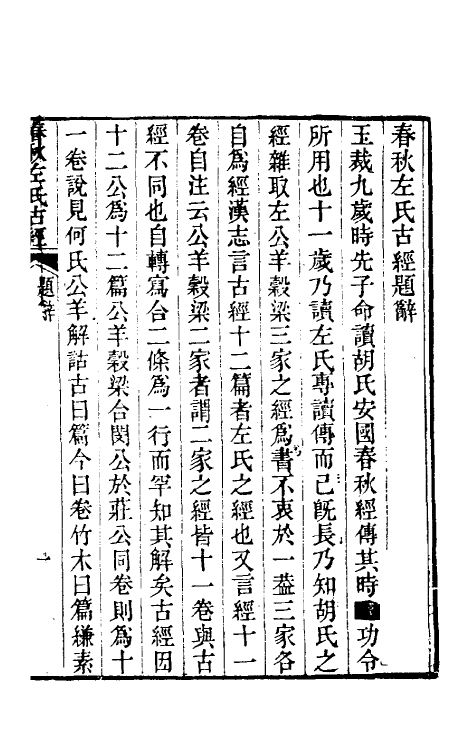 春秋左氏古經題辭
玉裁九歲時先子命讀胡氏安國春秋經傳其時功令
所用也十一歲乃讀左氏專讀傳而已旣長乃知胡氏之
經雜取左公羊穀梁三家之經爲書不衷於一葢三家各
自爲經漢志言古經十二篇者左氏之經也又言經十一
卷自注云公羊穀梁二家者謂二家之經皆十一卷與古
經不同也自轉寫合二條爲一行而罕知其解矣古經因
十二公爲十二篇公羊穀梁合閔公於莊公同卷則爲十
一卷說見何氏公羊解詁古曰篇今曰卷竹木曰篇縑素
春秋左氏古經
題辭
一